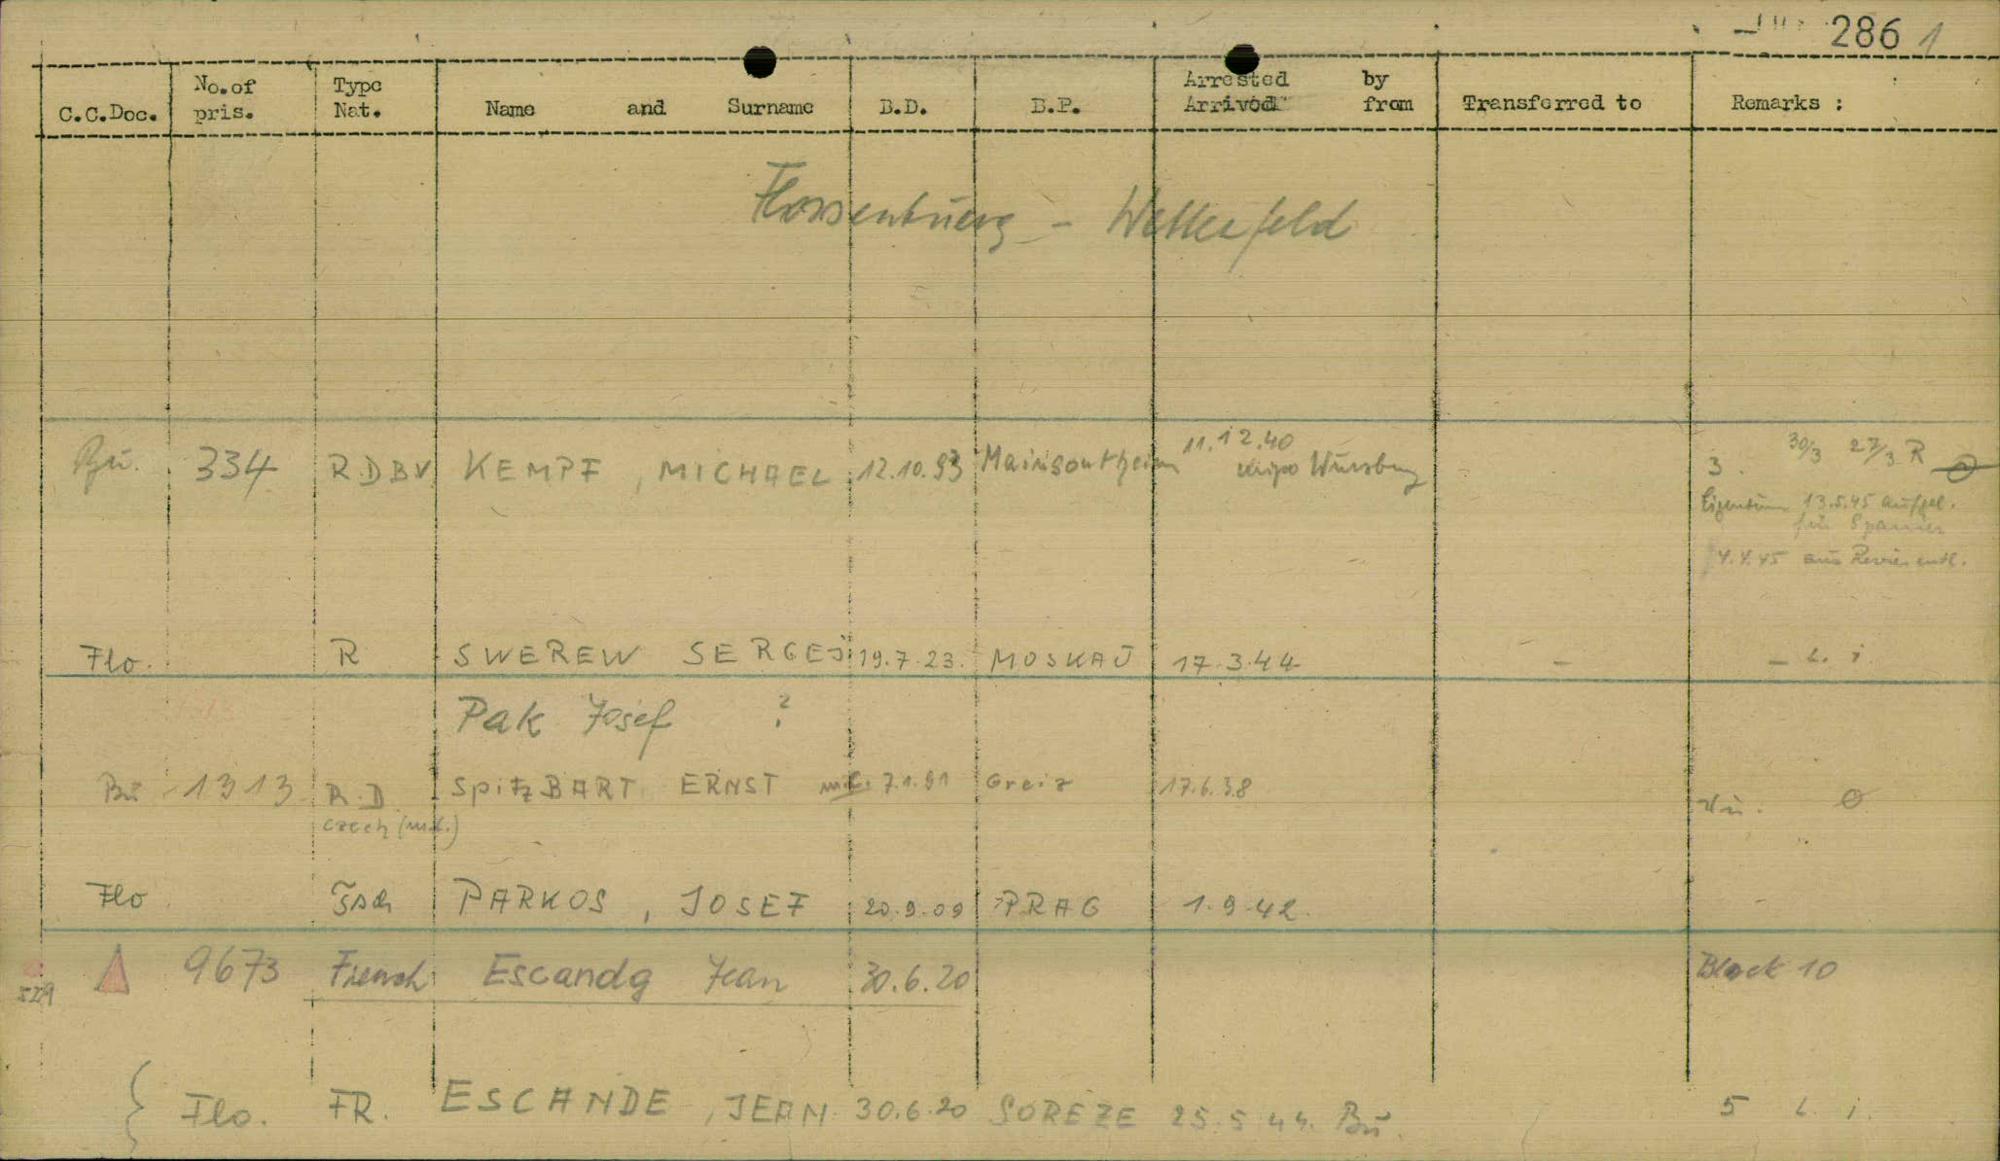 286 1
C.C.Doc. No.of pris. Type Nat. Name and Surname B.D. B.P. Arrested by Arrived from Transferred to Remarks :
Flossenbuerg - Wetterfeld
Bu. 334 RDBV KEMPF, MICHAEL 12.10.93 Mainsontheim 11.12.40 Würzburg 3. 30/3 27/3 R
Eigentum 13.5.45 aufgel.
für Spanier
4.4.45 aus Revier entl.
Flo. R SWEREW SERGEJ 19.7.23. MOSKAU 17.3.44 - - L. i.
Pak Josef ?
Bu 1313 R.D SpitzBART ERNST 7.1.91 Greiz 17.6.38
czech
Flo Tsch PARKOS, JOSEF 20.9.09 PRAG 1.9.42.
529 9673 French Escandg Jean 30.6.20 Block 10
Flo. FR. ESCANDE, JEAN 30.6.20 SOREZE 25.5.44. Bu. 5 L. i.